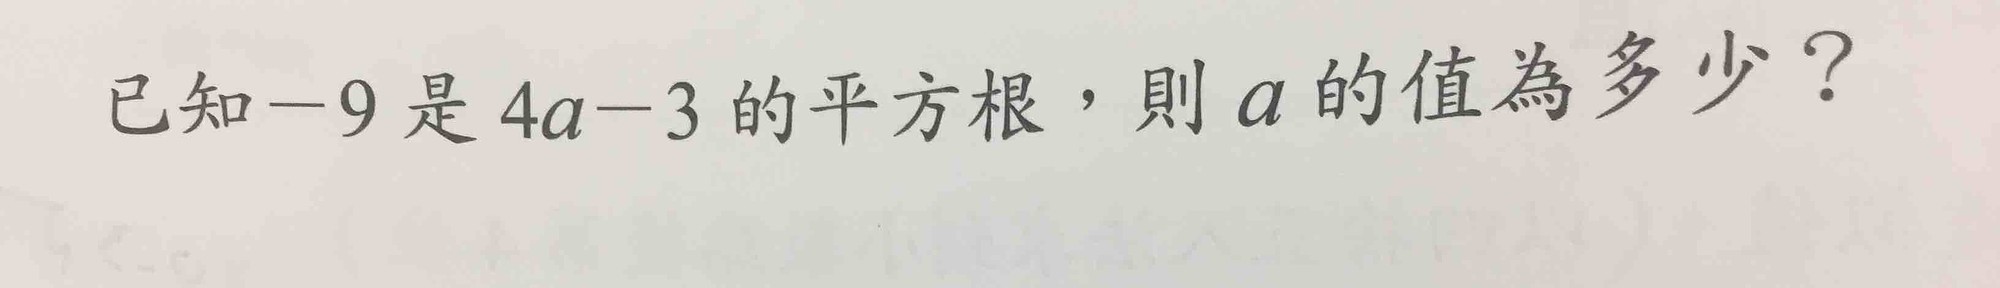 已知－9 是 4a－3 的平方根，則 a 的值為多少？